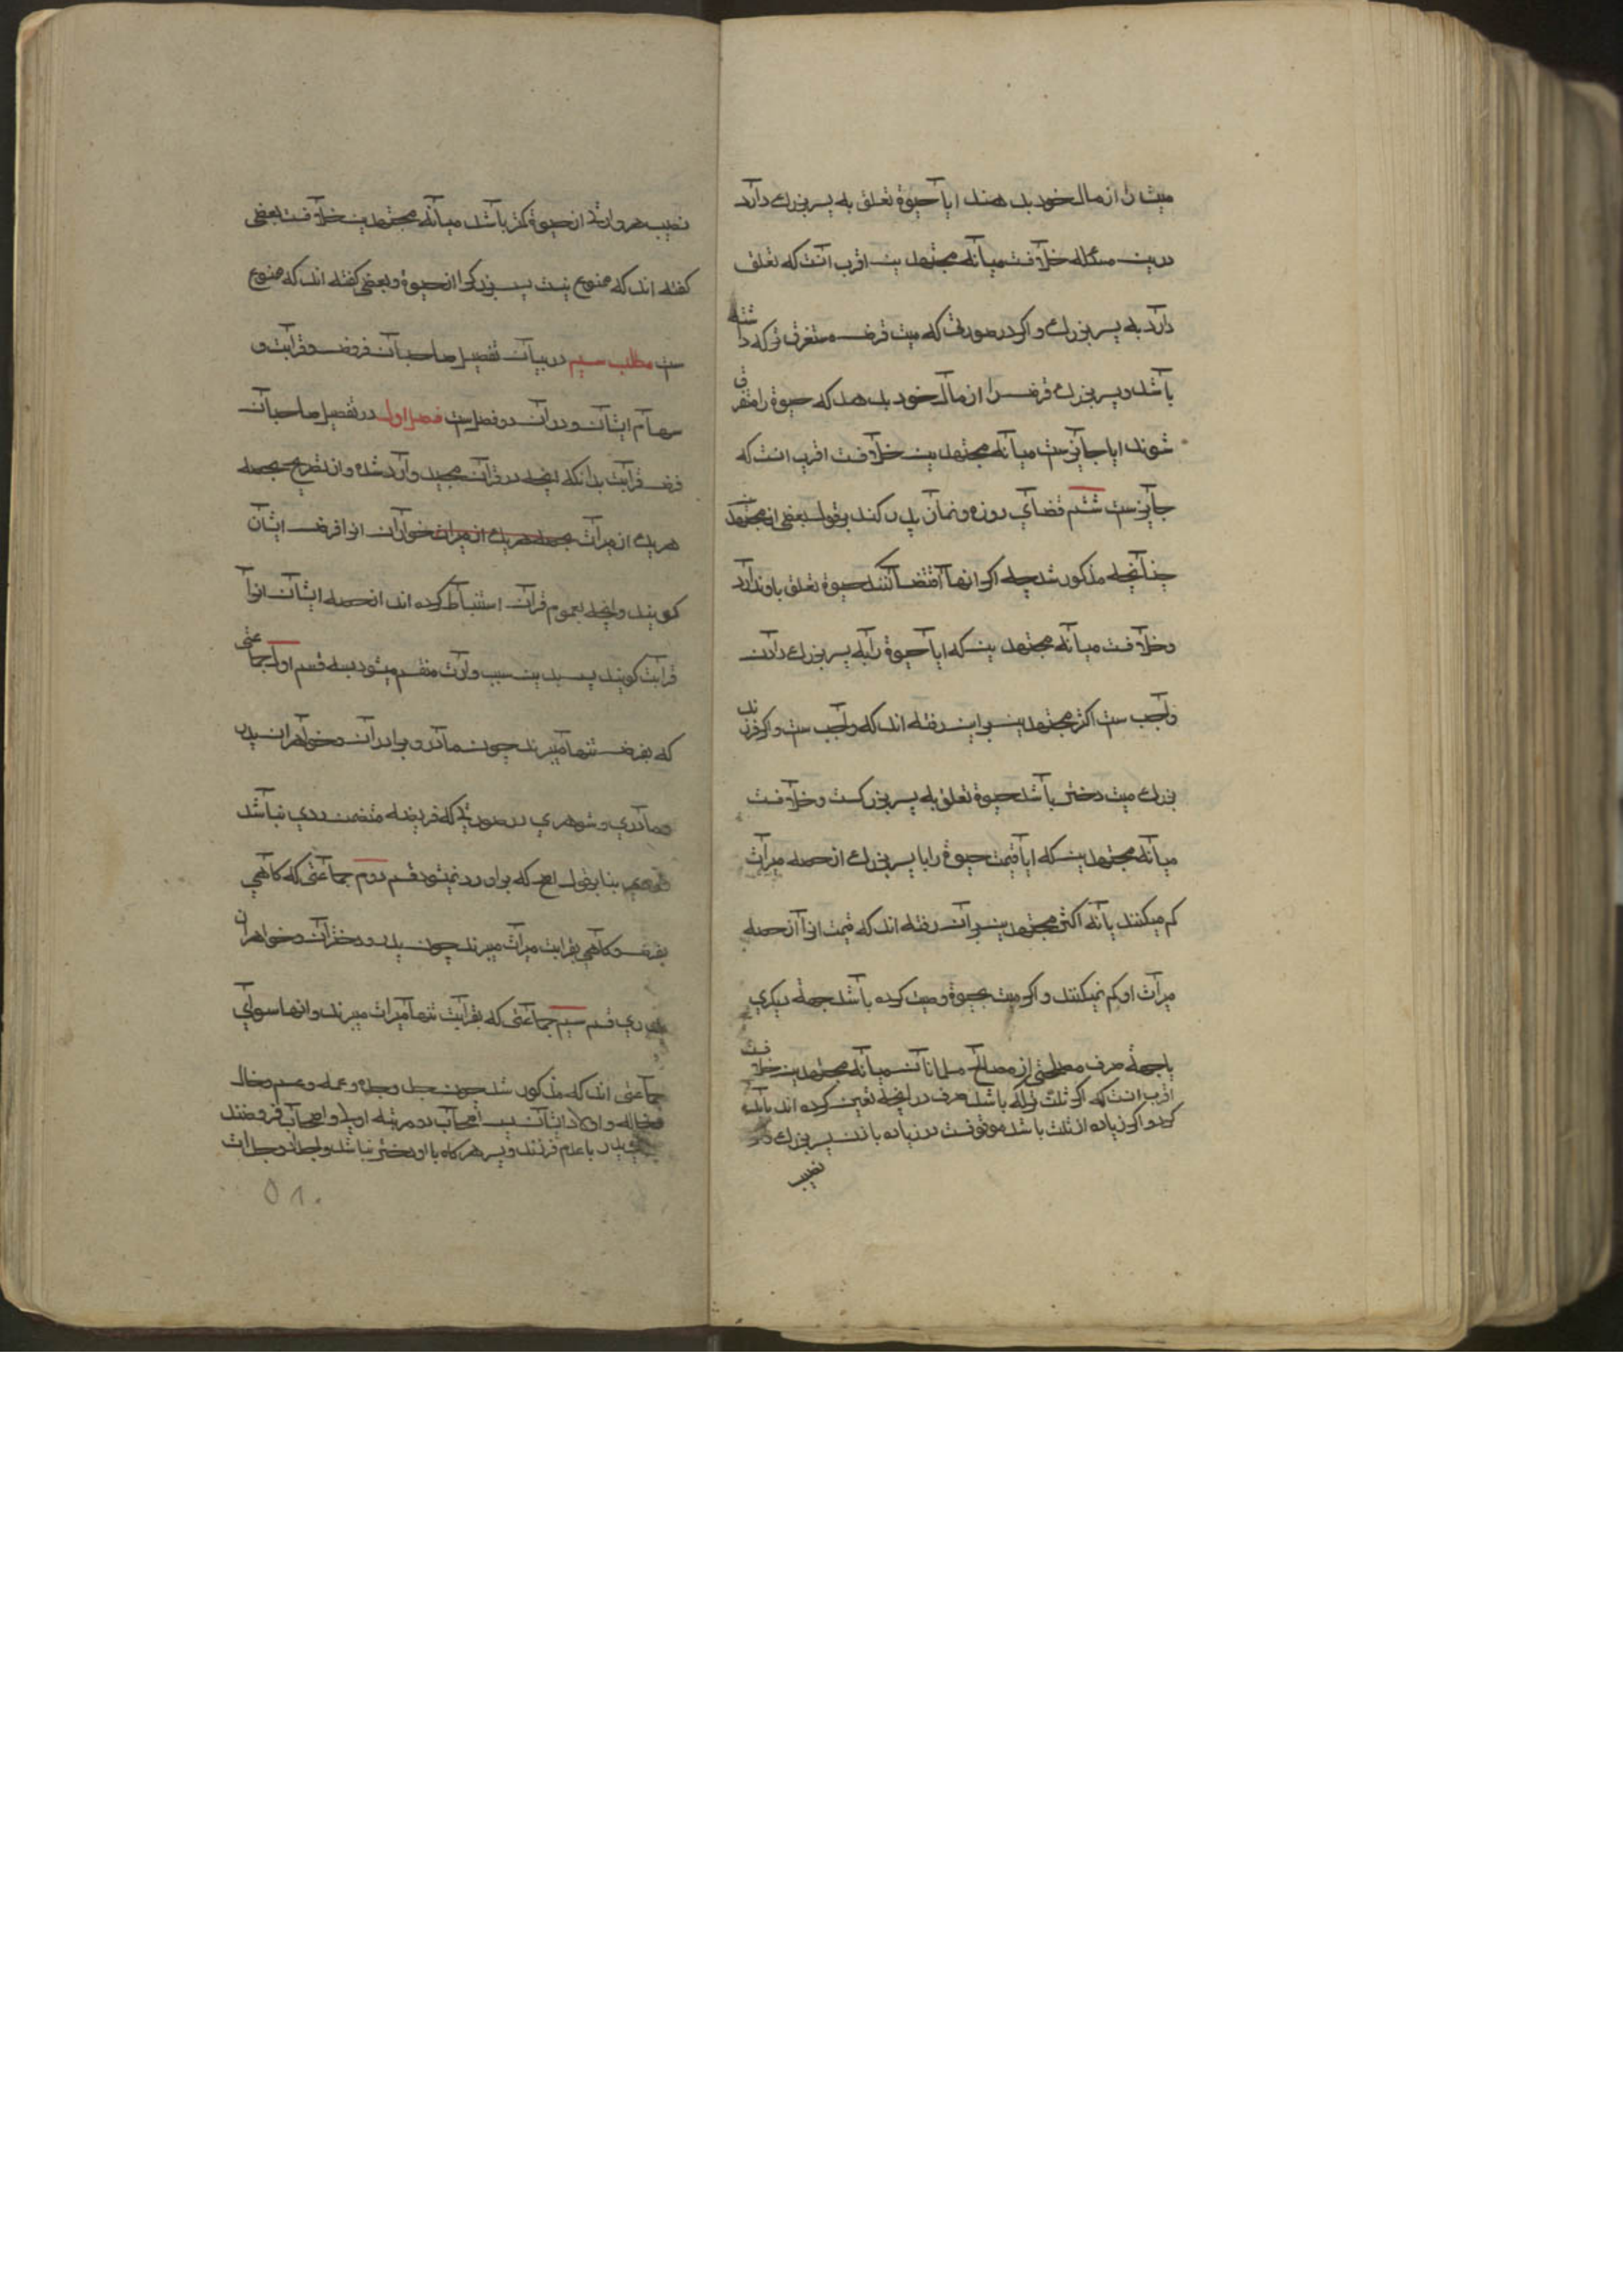 میتشان از مال خود بدهند ایا حبوة تعلق به پسر بزرك دارد
درین مسئله خلافست میانه مجتهدین اقرب انست که تعلق
دارد به پسر بزرك و اکر در صورتی که میت قرض مستغرق ترکه داشته
باشد و پسر بزرك قرض را از مال خود بدهد که حبوة را متفرق
شوند ایا جایزست میانه مجتهدین خلافست اقرب انست که
جایزست ششم قضای روزه و نماز پدر کند بقول بعضی از مجتهدین
چنانچه مذکور شد چه اکر انها اقتضا نکند حبوة تعلق باو ندارد
و خلافست میانه مجتهدین که ایا حبوة را به پسر بزرك دادن
واجب ست اکثر مجتهدین براین رفته اند که واجب ست و اکر فرزند
بزرك میت دختر باشد حبوة تعلق به پسر بزركست و خلافست
میانه مجتهدین که ایا قیمت حبوة را با پسر بزرك از حصه میراث
کم میکنند یا نه اکثر مجتهدین بران رفته اند که قیمت انرا از حصه
میراث او کم نمیکنند و اکر میت بحبوة وصیت کرده باشد جهة دیکری
یا جهة صرف مصلحتی از مصالح مسلمانان میانه مجتهدین خلافست
اقرب انست که اکر ثلث ترکه باشد صرف در انچه تعیین کرده اند باید
کرد و اکر زیاده از ثلث باشد موقوفست در زیاده باذن پسر بزرك و اکر
نصیب
نصیب هر وارثی از حبوة کمتر باشد میانه مجتهدین خلافست بعضی
کفته اند که ممنوع نیست پسر بزرك از حبوة و بعضی کفته اند که ممنوع
ست مطلب سیم در بیان تفصیل صاحبان فروض و قرابت و
سهام ایشان و دران دو فصل ست فصل اول در تفصیل صاحبان
فرض و قرابت بدانکه انچه در قران مجید وارد شده و از تصریح بحصه
هریك از میراث بحصه هریك از میراث خواران انرا فرض ایشان
کویند و انچه بعموم قران استنباط کرده اند از حصه ایشان انرا
قرابت کویند پس بدین سبب وارث منقسم میشود بسه قسم اول جماعتی
که بفرض تنها میبرند چون مادر و برادران و خواهران پدر
مادری و شوهری در صورتی که فریضه متضمن ردی نباشد
بنابر قول اصح که بر او رد نمیشود قسم دوم جماعتی که کاهی
بفرض و کاهی بقرابت میراث میبرند چون پدر و دختران و خواهران
پدری قسم سیم جماعتی که بقرابت تنها میراث میبرند و انها سوای
جماعتی اند که مذکور شد چون جد و جده و عمه و عم و خال
و خاله و اولاد ایشان پس اصحاب دو مرتبه اولی و اصحاب فروضند
پدر با عدم فرزند و پسر هرکاه با او دختر نباشد و اجداد و جدات
۵۸۰